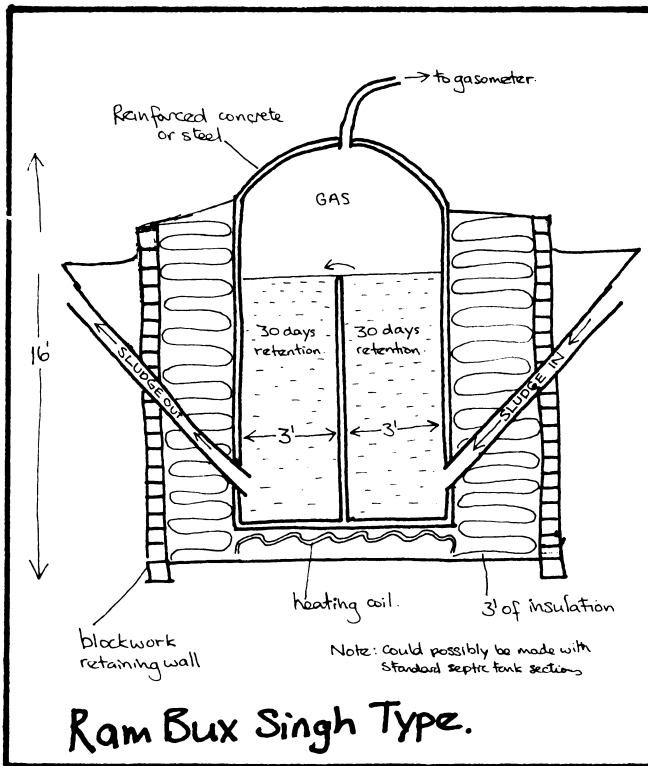 → to gasometer.
Reinforced concrete
or steel
GAS
16'
30 days
retention
30 days
retention.
SLUDGE OUT
SLUDGE IN
← 3' →
← 3' →
heating coil.
3' of insulation
blockwork
retaining wall
Note: Could possibly be made with
standard septic tank sections
Ram Bux Singh Type.